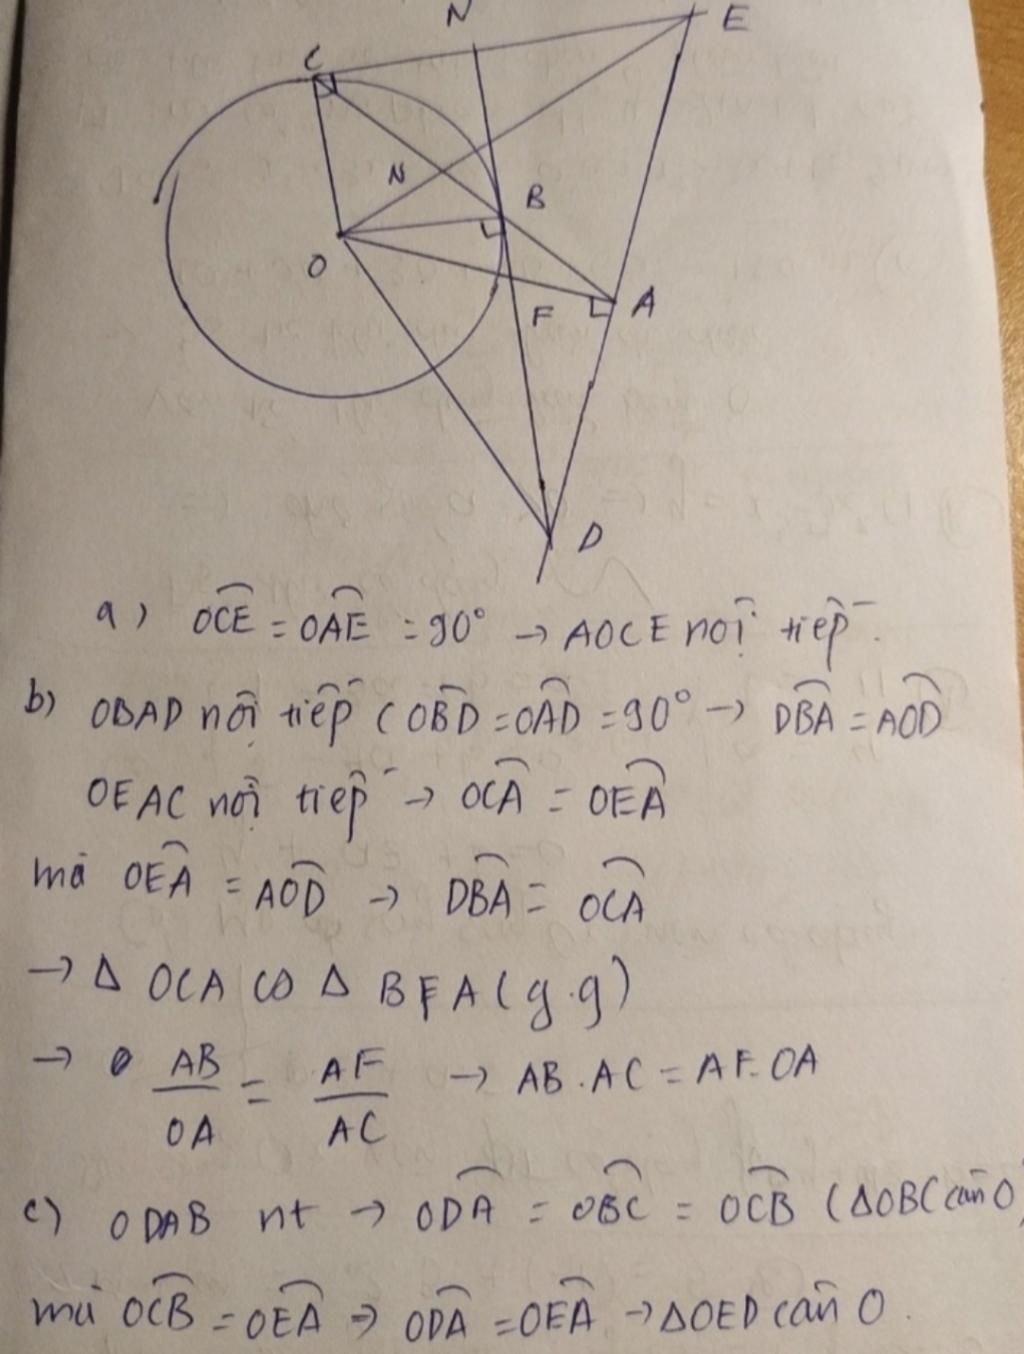 N
E
C
N
B
O
F
A
D
a) OCE = OAE = 90° → AOCE nội tiếp.
b) OBAD nội tiếp (OBD = OAD = 90° → DBA = AOD
OEAC nội tiếp → OCA = OEA
mà OEA = AOD → DBA = OCA
→ Δ OCA ∽ Δ BFA (g.g)
→ AB/OA = AF/AC → AB.AC = AF.OA
c) ODAB nt → ODA = OBC = OCB (ΔOBC cân O)
mà OCB = OEA → ODA = OEA → ΔOED cân O.